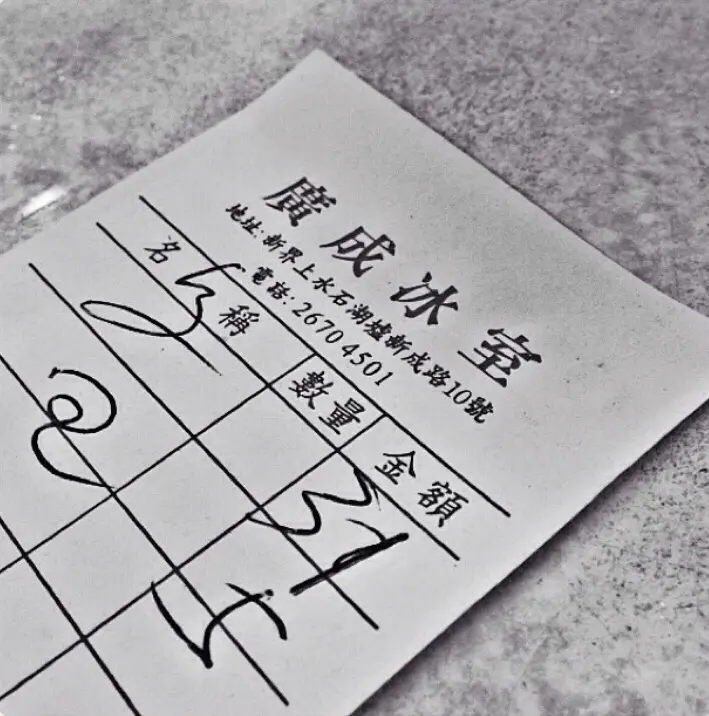 廣成冰室
地址:新界上水石湖墟新成路10號
電話:2670 4501
名稱 數量 金額
31